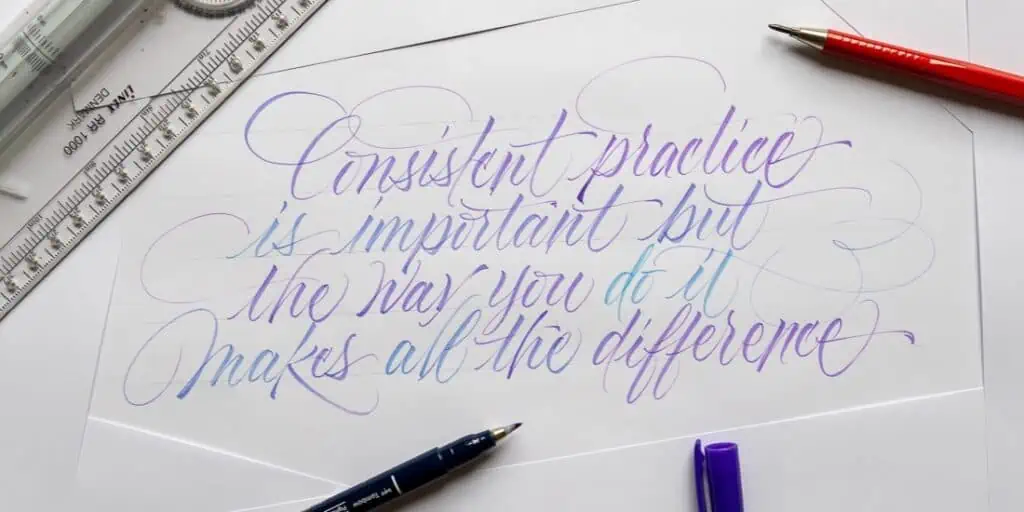 Consistent practice
is important but
the way you do it
makes all the difference
LINEX AR 1000
DENMARK
Tombow